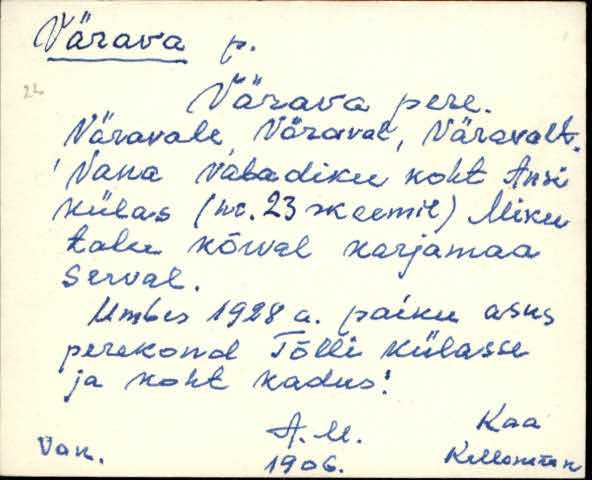 Värava p.
22
Värava pere.
Väravale, Väraval, Väravalt.
Vana vabadiku koht Ansi
külas (nr. 23 skeemil) Miku
talu kõrval karjamaa
serval.
Umbes 1928 a. paiku asus
perekond Tõlli külasse
ja koht kadus.
Van. A. M. Kaa
1906.